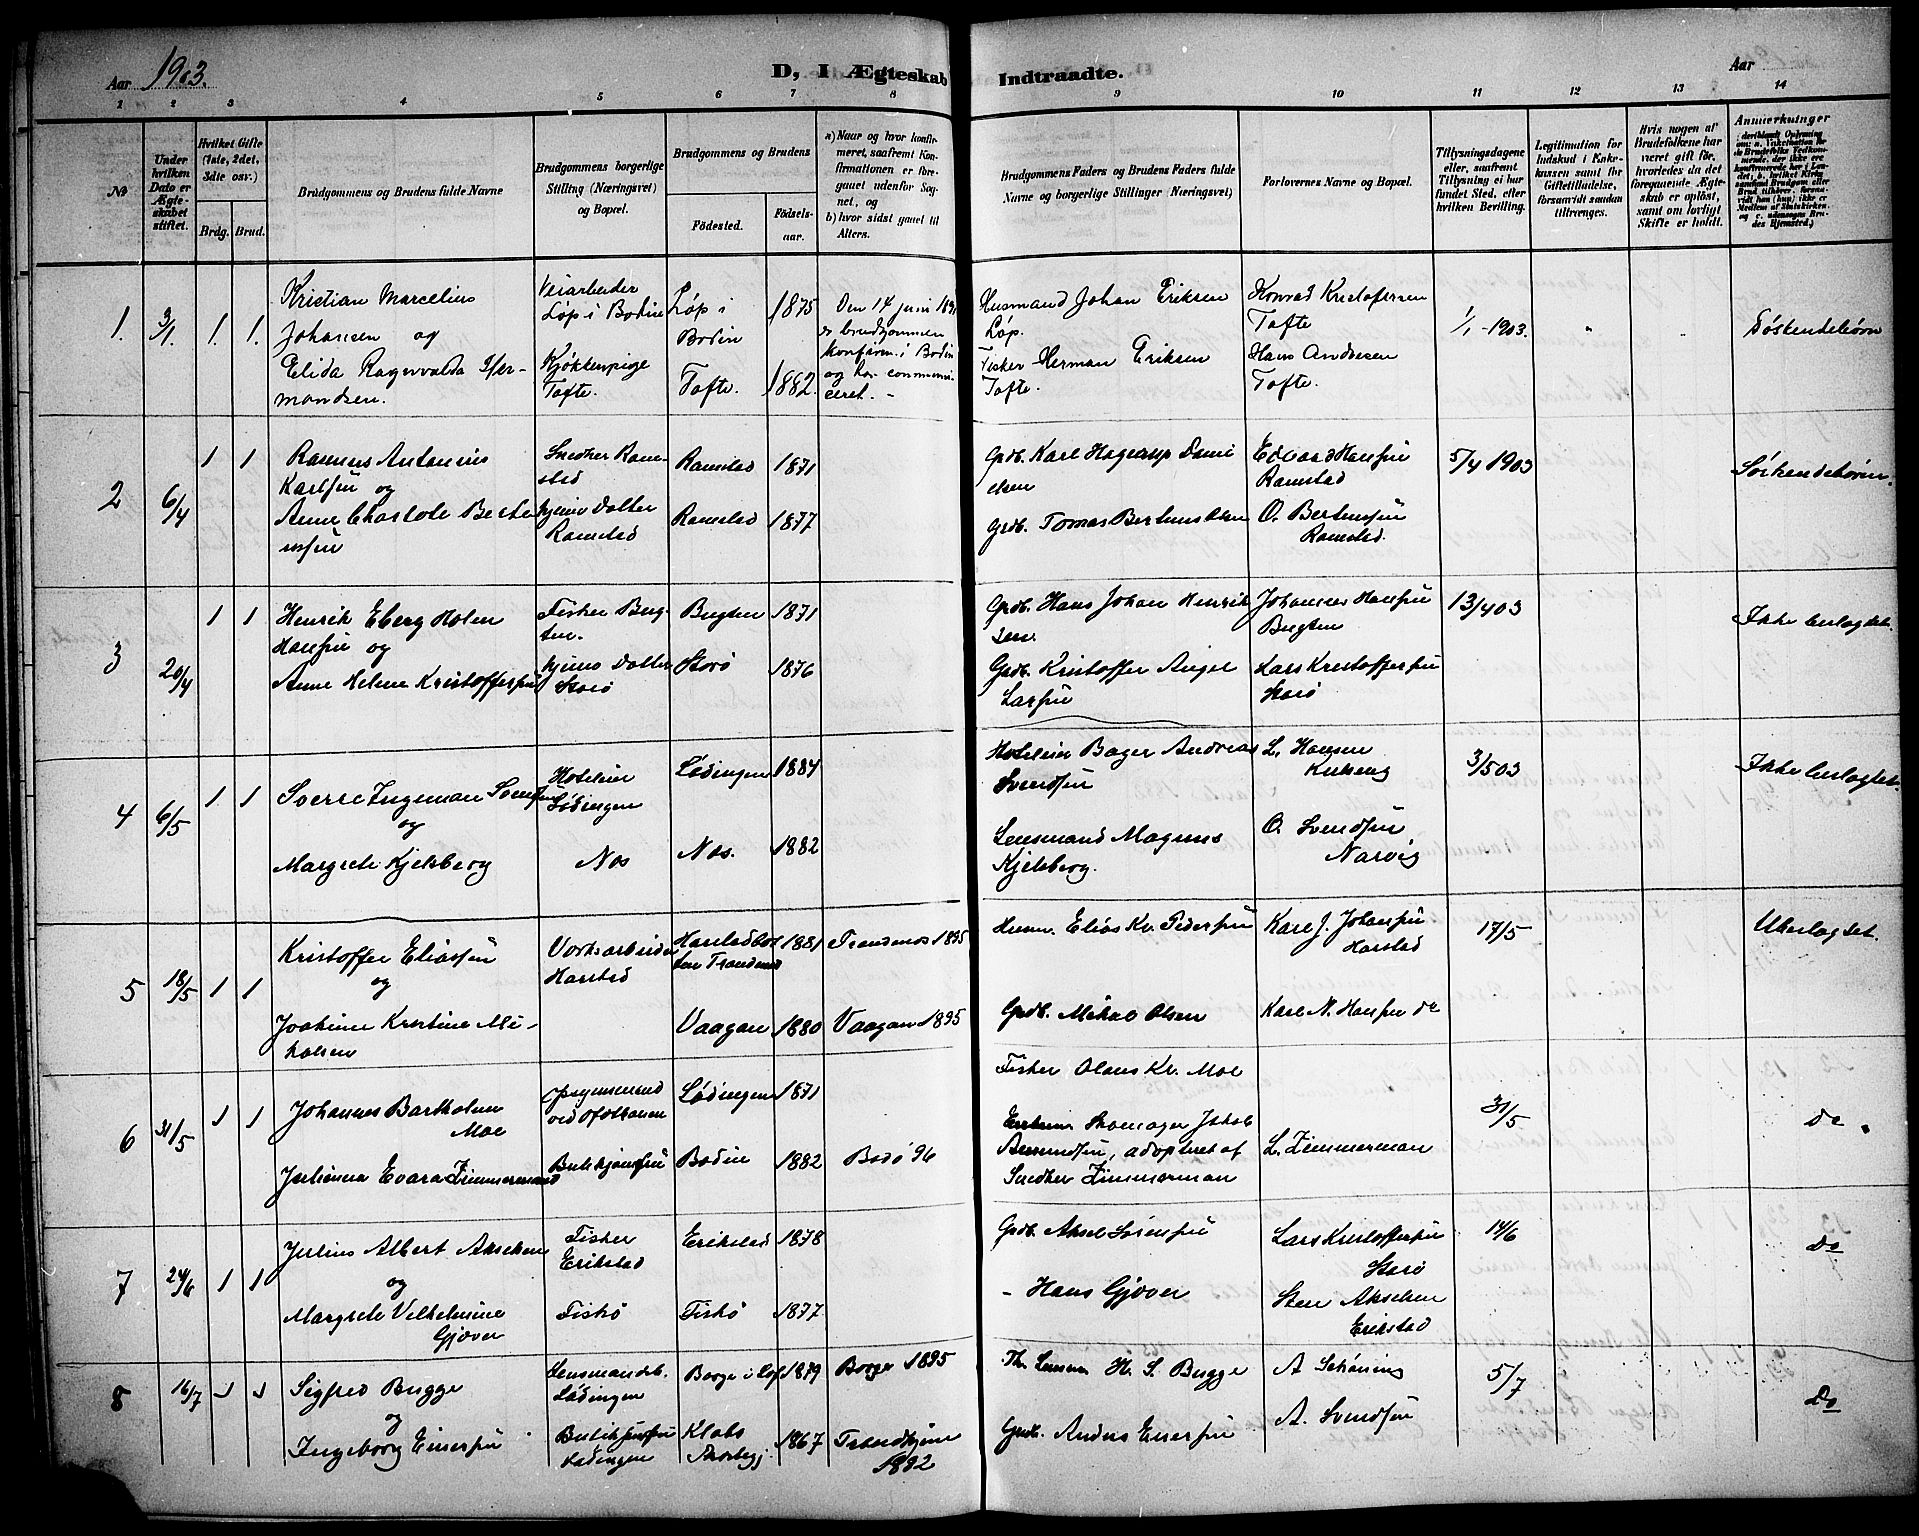 Aar 1903.
D, I Ægteskab Indtraadte.
Aar
1 2 3 4 5 6 7 8 9 10 11 12 13 14
№
Under hvilken Dato er Ægteskabet stiftet.
Hvilket Gifte (1ste, 2det, 3die osv.)
Brdg. Brud.
Brudgommens og Brudens fulde Navne
Brudgommens borgerlige Stilling (Næringsvei) og Bopæl.
Brudgommens og Brudens
Födested. Födselsaar.
a) Naar og hvor konfirmeret, saafremt Konfirmationen er foregaaet udenfor Sognet, og
b) hvor sidst gaaet til Alters.
Brudgommens Faders og Brudens Faders fulde Navne og borgerlige Stillinger (Næringsvei)
Forlovernes Navne og Bopæl.
Tillysningsdagene eller, saafremt Tillysning ei har fundet Sted, efter hvilken Bevilling.
Legitimation for Indskud i Enkekassen samt for Giftetilladelse, forsaavidt saadan tiltrænges.
Hvis nogen af Brudefolkene har været gift før, hvorledes da det foregaaende Ægteskab er opløst, samt om lovligt Skifte er holdt.
Anmerkninger
1. 3/1. 1. 1. Kristian Marcelius Veiarbeider Løp i 1875 Den 14 juni 1891 Husmand Johan Eriksen Konrad Kristofersen 1/1-1903. " " Søskendebørn
Johansen og Løp i Bodin Bodin er brudgommen Løp. Tofte
Elida Ragnvalda Her- Kjøkkenpige Tofte. 1882. konfirm. i Bodin Fisker Herman Eriksen Hans Andresen
mandsen. Tofte. og har communiceret. - Tofte. Tofte.
2 6/4 1 1 Rasmus Antonius Snedker Ramstad Ramstad 1871 Grdb. Karl Hagerup Danielsen Edvard Hansen 5/4 1903 Söskendebörn.
Karlsen og Ramstad
Anne Charlote Bertensen hjemv Datter Ramstad 1877 Grdb. Tomas Bertensen O. Bertensen
Ramstad Ramstad.
3 20/4 1 1 Henrik Eberg Holm Fisker Bugten. Bugten 1871 Grdb. Hans Johan Henriksen Johannes Hansen 13/4 03 Ikke beslægtet.
Hansen og Bugten
Anne Helene Kristoffersen hjemv Datter Storø 1876 Grdb. Kristoffer Angel Lars Kristoffersen
Storø Larsen Storø
4 6/5 1 1 Sverre Ingeman Svendsen Hoteleier Lödingen 1884 Hoteleier Bager Andreas L. Hansen 3/5 03 Ikke beslægtet.
og Lödingen Svendsen
Margrete Kjelsberg Nes Nes. 1882 Lensmand Magnus O. Svendsen
Kjelsberg. Narvig
5 18/5 1 1 Kristoffer Eliassen Harstad 1881 Trondenes 1895 Husm. Elias Kr. Pedersen Karl J. Johansen 17/5 Ubeslægtet.
og Harstad
Joakime Kristine Mi- Vaagan 1880 Vaagan 1895 Grdb. Mikal Olsen Karl N. Hansen do
kalsen
6 31/5 1 1 Johannes Bartholm Lødingen 1871 Fisker Olaus Kr. Moe 31/5 do.
Moe ved Ofotbanen Skomager Jakob
Julianna Evara Zimmermand Bodin 1882 Bodö 96 adopteret af L. Zimmerman
Snedker Zimmerman
7 24/6 1 1 Julius Albert Akselsen Fisker Erikstad 1878 Grdb. Aksel Sörensen Lars Kristoffersen 14/6 do
og Erikstad Storø
Margrete Vilhelmine Fiskø Fiskø 1877 - Hans Gjøver Sten Akselsen
Gjøver Erikstad
8 16/7 1 1 Sigfred Bugge Lensmandsb. Borge i Lof 1879 Borge 1895 H. S. Bugge A Schöning 5/7 do
og Lödingen
Ingeborg Einersen Lödingen Klæbo 1867 Trondhjem 1882 Grdb. Anders Einersen A. Svendsen